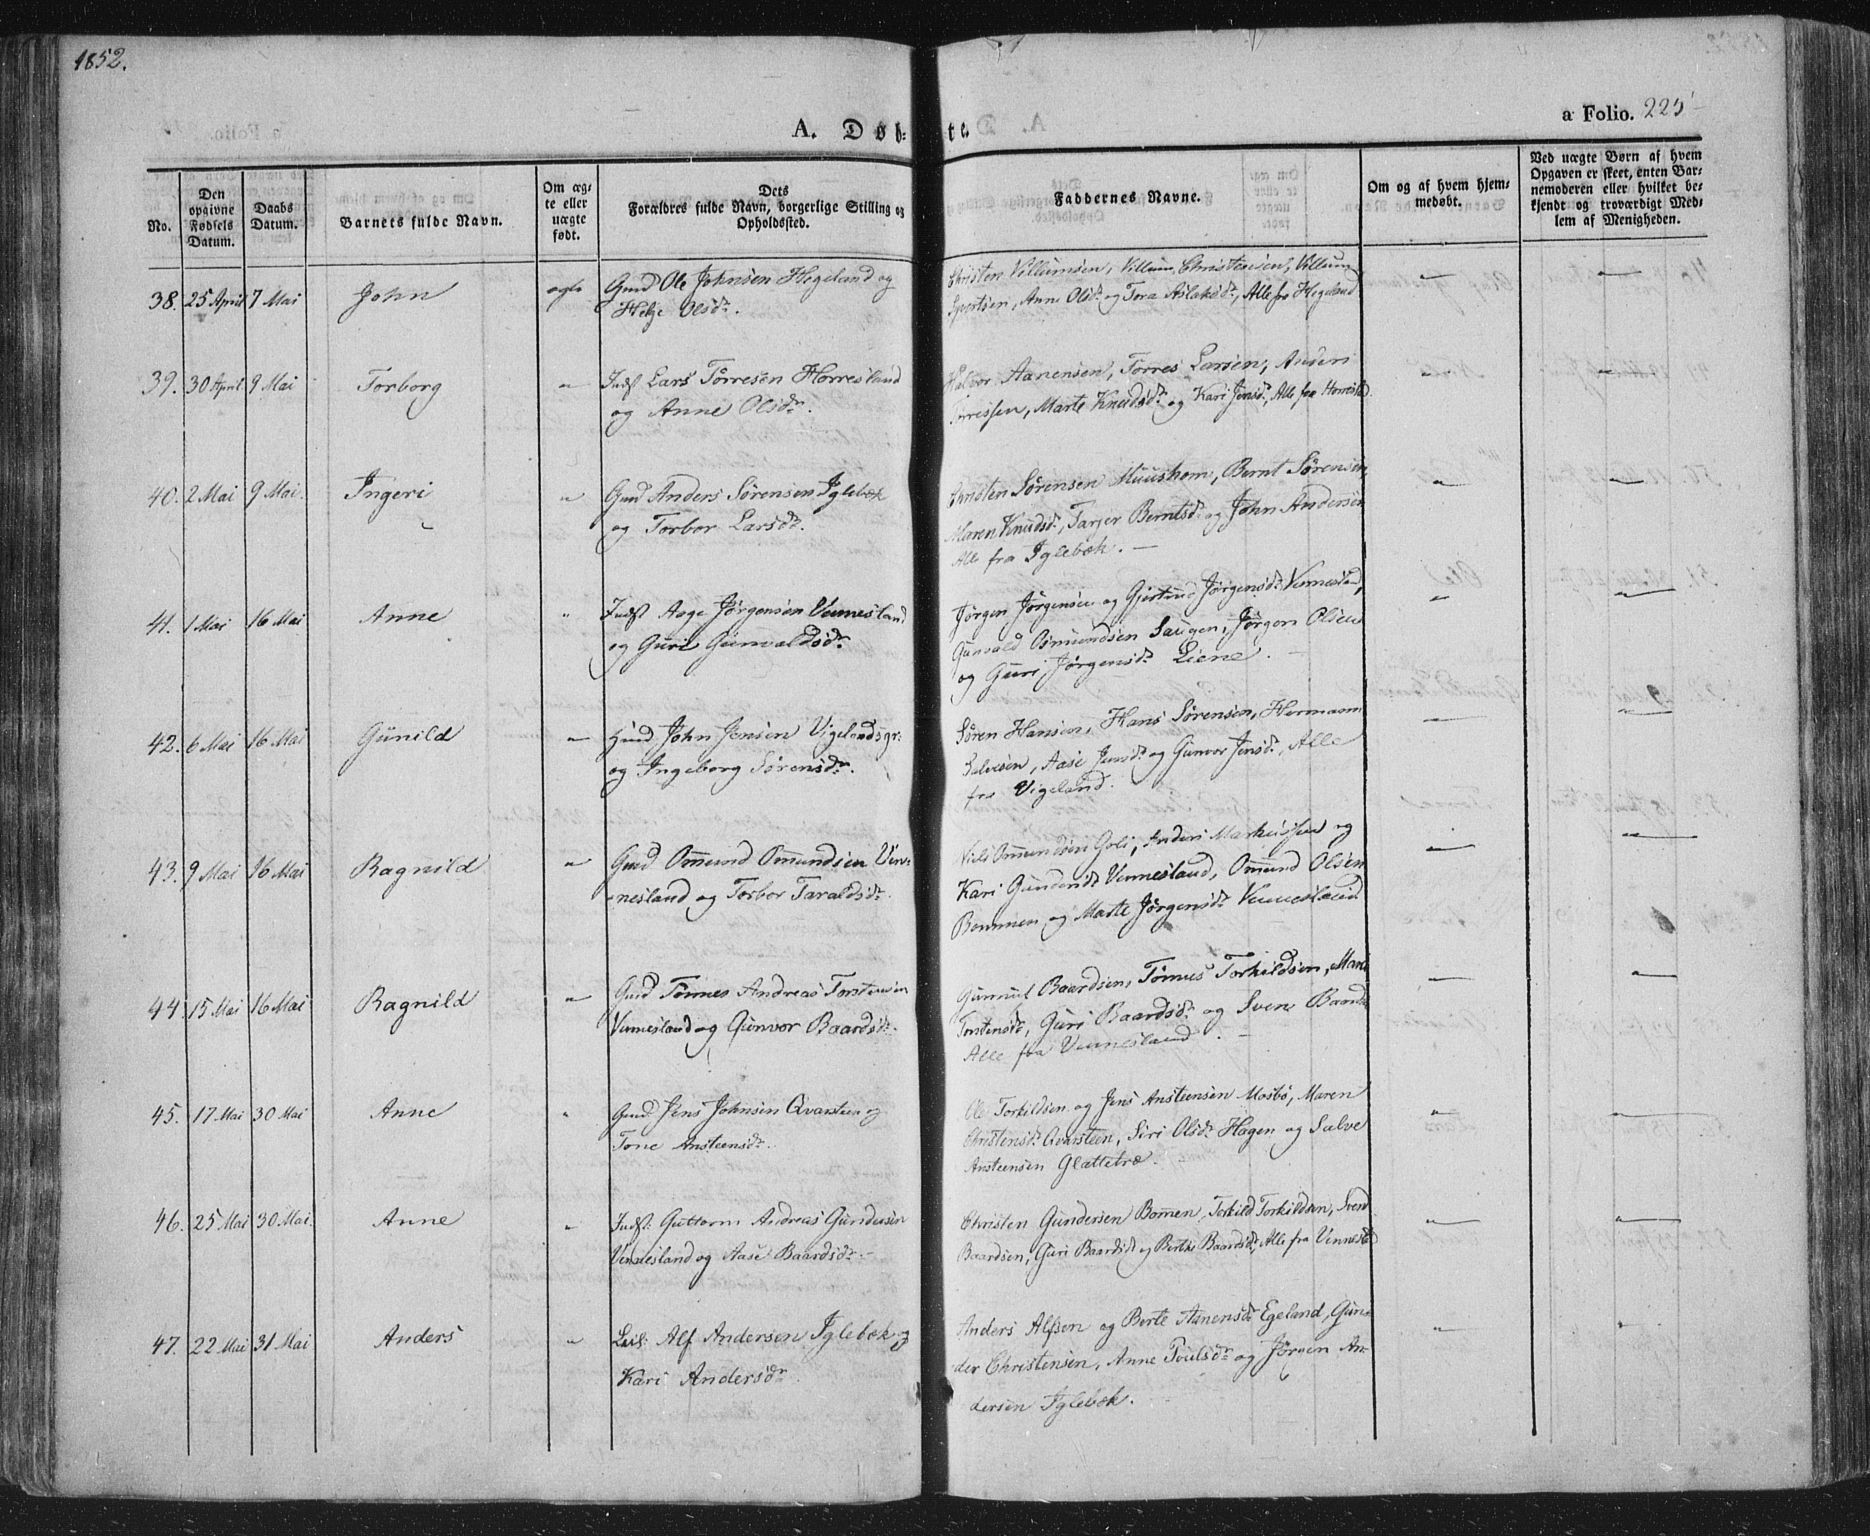 1852.
A. Døbte.
a Folio. 225
No.
Den opgivne Fødsels Datum.
Daabs Datum.
Barnets fulde Navn.
Om ægte eller uægte født.
Dets Forældres fulde Navn, borgerlige Stilling og Opholdssted.
Faddernes Navne.
Om og af hvem hjemmedøbt.
Ved uægte Børn af hvem Opgaven er skeet, enten Barnemoderen eller hvilket bekjendt og troværdigt Medlem af Menigheden.
38. 25 April 7 Mai John ægte Gmd Ole Johnsen Hegeland og
Helje Olsdr.
Christen Villumsen, Villum Christensen, Villum
Syvertsen, Anne Olsdr og Tora Aslaksdr, Alle fra Hegeland
39. 30 April 9 Mai Torborg " Indst Lars Tørresen Horresland
og Anne Olsdr.
Halvor Aanensen, Torres Larsen, Anders
Torressen, Marte Knudsdr og Kari Jensdr, Alle fra
40. 2 Mai 9 Mai. Ingeri " Gmd Anders Sørensen Iglebæk
og Torbor Larsdr.
Christen Sørensen Muushom, Bernt Sørensen,
Maren Knudsdr, Tarjer Berntsdr og John Andersen
Alle fra Iglebæk. —
41. 1 Mai 16 Mai Anne " Indst Aage Jørgensen Vennesland
og Guri Gunvaldsdr
Jørgen Jørgensen og Gjertrud Jørgensdr Vennesland,
Gunvald Osmundsen Saugen, Jørgen Olsen
og Guri Jørgensdr Liene. —
42. 6 Mai 16 Mai Gunild " John Jensen Vigelands
og Ingeborg Sørensdr.
Søren Hansen, Hans Sørensen, Hermann
Salvesen, Aase Jensdr og Gunvor Jensdr, Alle
fra Vigeland.
43. 9 Mai 16 Mai Ragnild " Gmd Ommund Ommundsen Ven-
nesland og Torbor Taraldsdr.
Niels Ommundsen Goli, Anders Markussen og
Kari Gundersdr Vennesland, Ommund Olsen
Bommen og Marte Jørgensdr Vennesland
44. 15 Mai 16 Mai Ragnild " Gmd Tønnes Andreas Torstensen
Vennesland og Gunvor Baardsdr.
Gunnul Baardsen, Tønnes Torkildsen, Mari
Torstensdr, Guri Baardsdr og Sven Baards
Alle fra Vennesland. —
45. 17 Mai 30 Mai Anne " Gmd Jens Johnsen Qvarsteen og
Tone Ansteensdr.
Ole Torkildsen og Jens Ansteensen Mosbø, Maren
Christensdr Qvarsteen, Siri Olsdr Hagen og Salve
Ansteensen Glattetræ.
46. 25 Mai 30 Mai. Anne " Indst: Guttorm Andreas Gundersen
Vennesland og Aase Baardsdr. —
Christen Gundersen Bommen, Torkild Torkildsen, Svend
Baardsen, Guri Baardsdr og Berthe Baardsdr, Alle fra Vennesld
47. 22 Mai 31 Mai Anders " Alf Andersen Iglebæk og
Kari Andersdr
Anders Alfsen og Berte Aanensdr Egeland, Gun-
der Christensen, Anne Poulsdr og Jörgen An-
dersen Iglebæk.